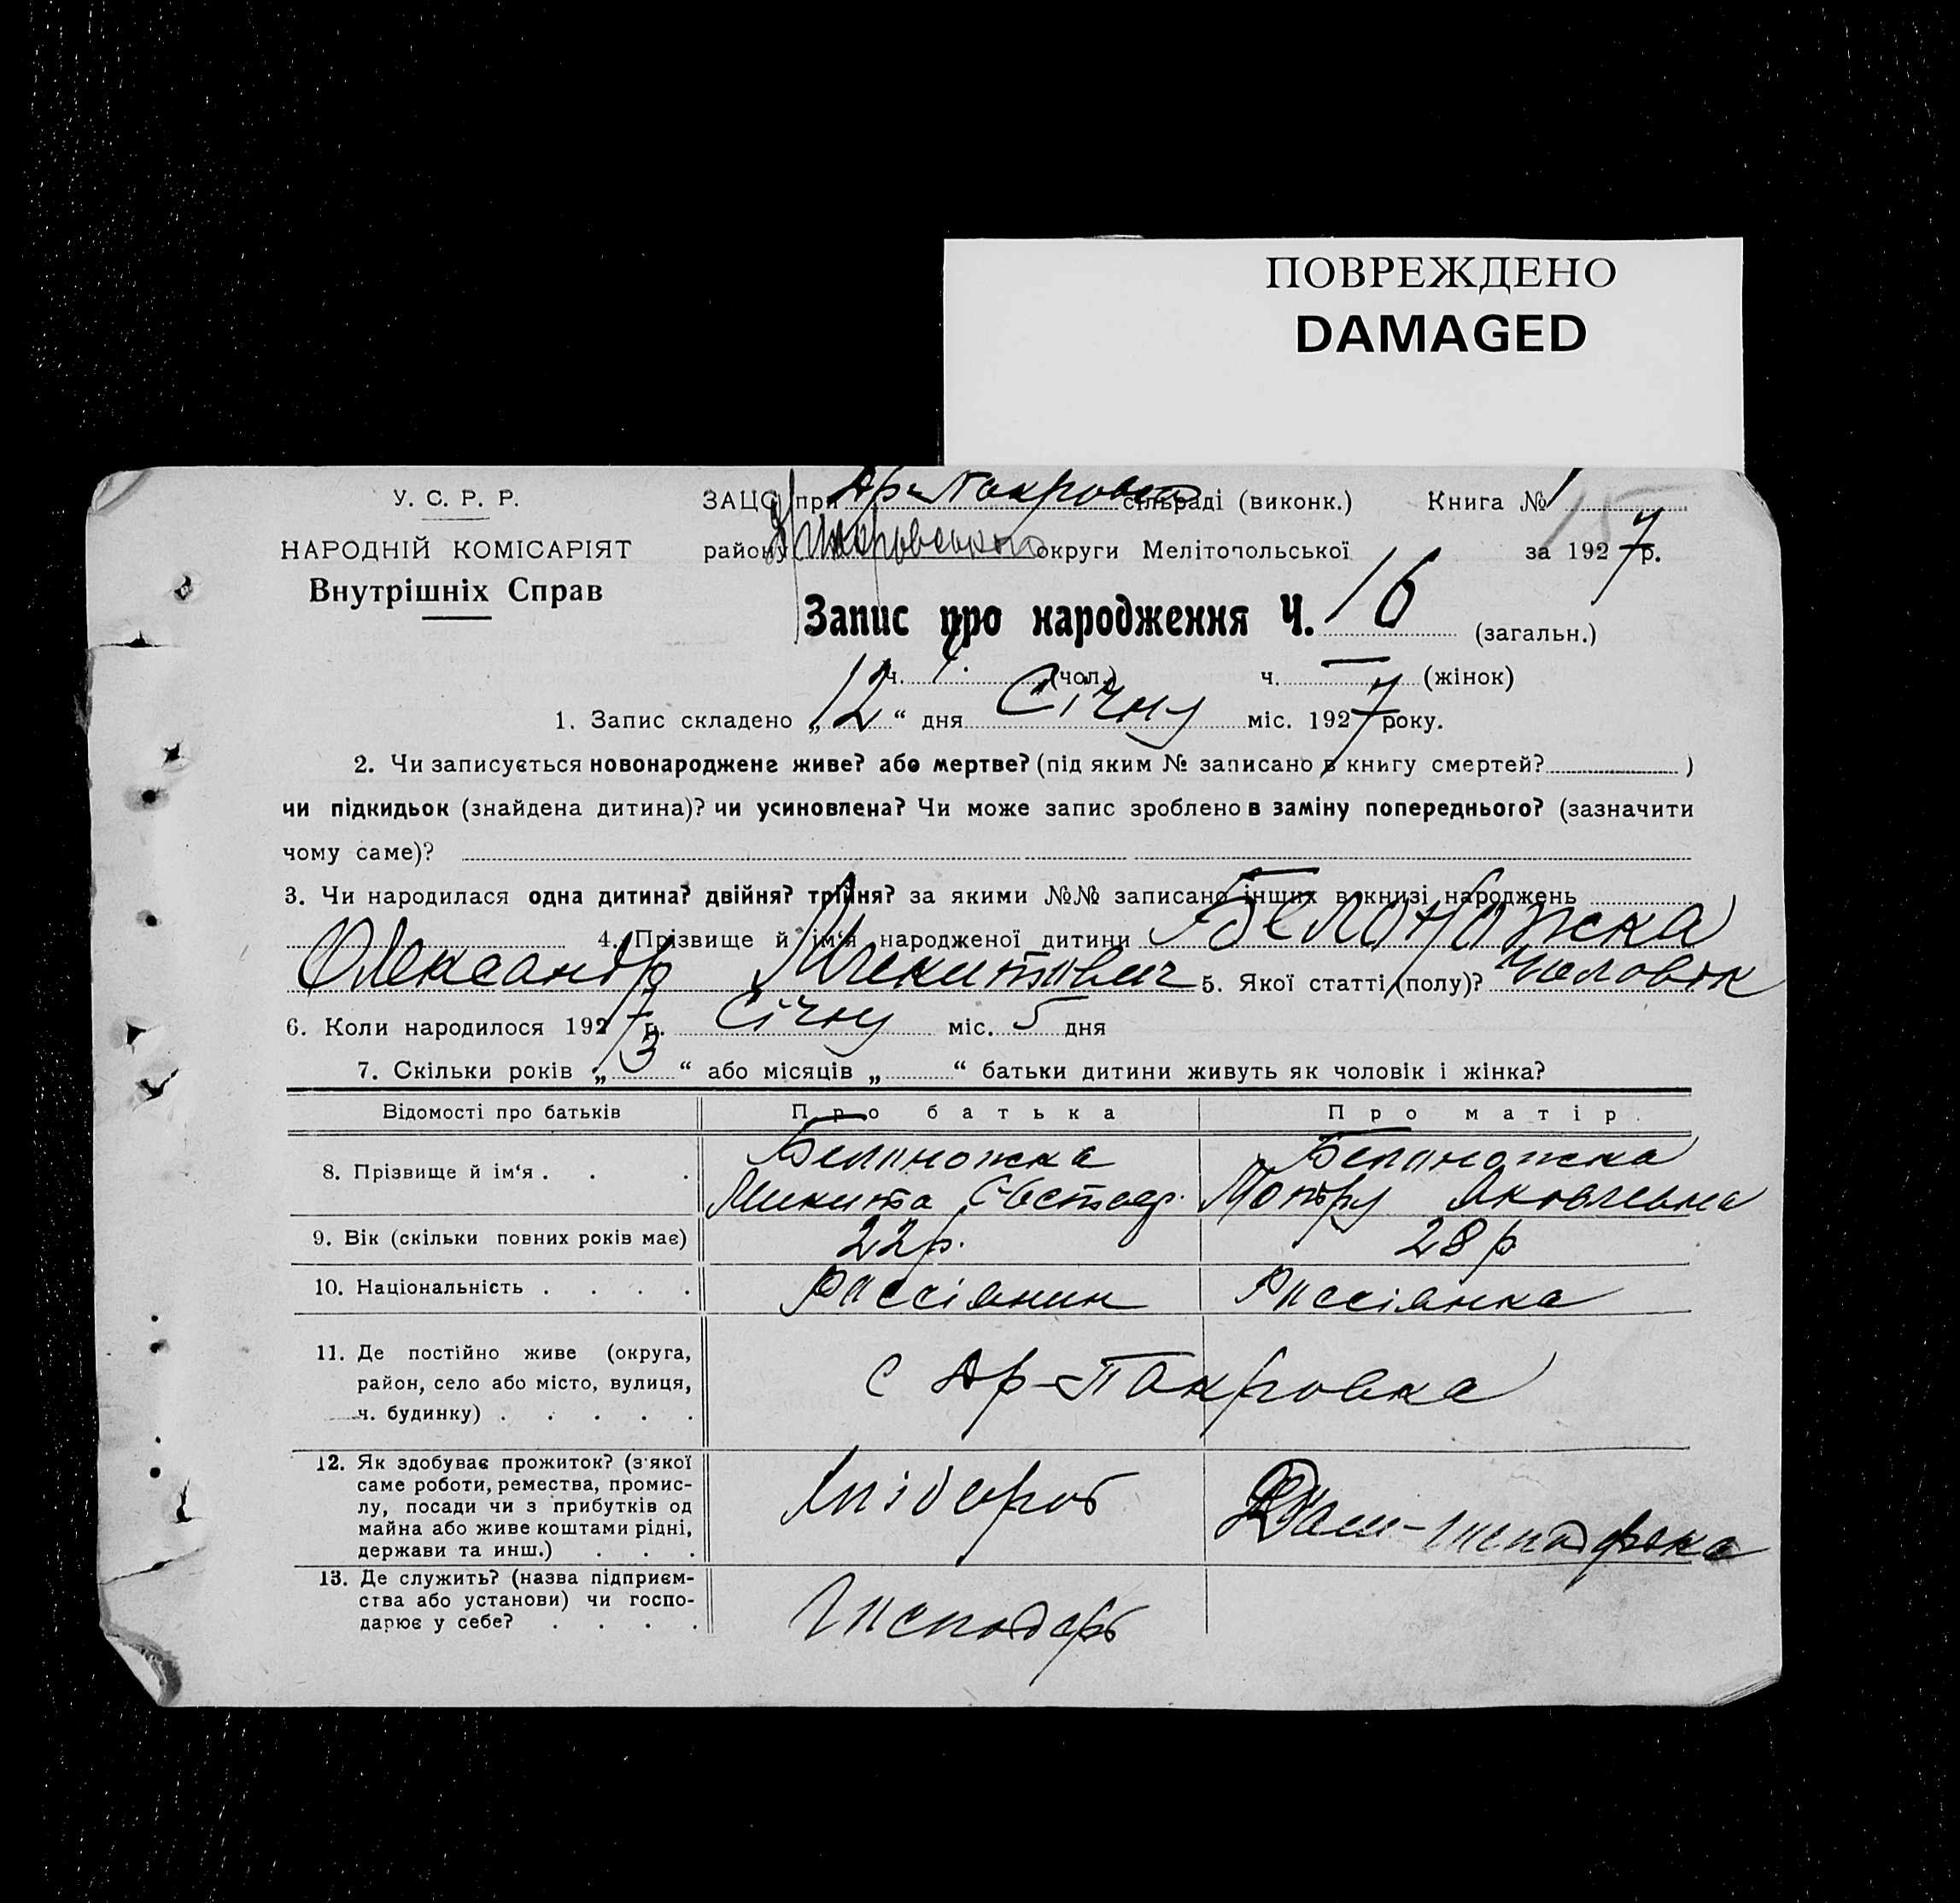 ПОВРЕЖДЕНО
DAMAGED
У. С. Р. Р.
НАРОДНІЙ КОМІСАРІЯТ
Внутрішніх Справ
ЗАЦС при Ар-Покровск сільраді (виконк.) Книга № 1 15
району округи Мелітопольської за 1927 р.
Запис про народження Ч. 16 (загальн.)
ч. (чол.) ч. — (жінок)
1. Запис складено „12“ дня Січну міс. 1927 року.
2. Чи записується новонароджене живе? або мертве? (під яким № записано в книгу смертей? )
чи підкидьок (знайдена дитина)? чи усиновлена? Чи може запис зроблено в заміну попереднього? (зазначити
чому саме)?
3. Чи народилася одна дитина? двійня? трійня? за якими №№ записано інших в книзі народжень
4. Прізвище й ім'я народженої дитини Белоножка
Олександр Микитович 5. Якої статті (полу)? Чоловік
6. Коли народилося 1927 р. Січну міс. 5 дня
7. Скільки років „3“ або місяців „ “ батьки дитини живуть як чоловік і жінка?
Відомості про батьків Про батька Про матір
8. Прізвище й ім'я . . . Белоножка Белоножка
Микита Мотря Яковлевна
9. Вік (скільки повних років має) 22 р. 28 р
10. Національність . . . . Россіянин Россіянка
11. Де постійно живе (округа,
район, село або місто, вулиця,
ч. будинку) . . . . .
с Ар-Покровка
12. Як здобуває прожиток? (з'якої
саме роботи, ремества, промис-
лу, посади чи з прибутків од
майна або живе коштами рідні,
держави та инш.) . . .
Хлібороб
13. Де служить? (назва підприєм-
ства або установи) чи госпо-
дарює у себе? . . . .
Господарь